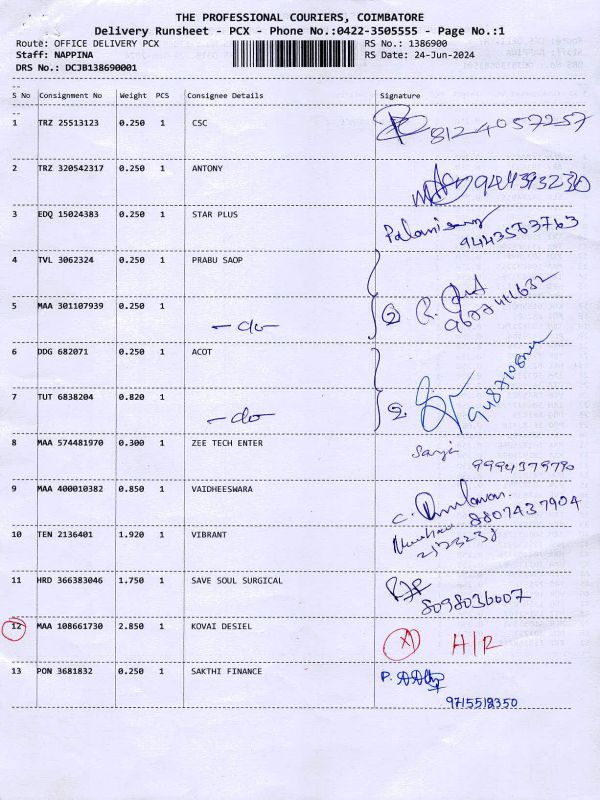 THE PROFESSIONAL COURIERS, COIMBATORE
Delivery Runsheet - PCX - Phone No.:0422-3505555 - Page No.:1
Route: OFFICE DELIVERY PCX RS No.: 1386900
Staff: NAPPINA RS Date: 24-Jun-2024
DRS No.: DCJB138690001
S No Consignment No Weight PCS Consignee Details Signature
1 TRZ 25513123 0.250 1 CSC 8124057257
2 TRZ 320542317 0.250 1 ANTONY
3 EDQ 15024383 0.250 1 STAR PLUS Palanisamy
9443563763
4 TVL 3062324 0.250 1 PRABU SAOP
5 MAA 301107939 0.250 1 -do- 2
6 DDG 682071 0.250 1 ACOT
7 TUT 6838204 0.820 1 -do- 2
8 MAA 574481970 0.300 1 ZEE TECH ENTER
9994379790
9 MAA 400010382 0.850 1 VAIDHEESWARA
8807437904
10 TEN 2136401 1.920 1 VIBRANT
11 HRD 366383046 1.750 1 SAVE SOUL SURGICAL
8098036007
12 MAA 108661730 2.850 1 KOVAI DESIEL H/R
13 PON 3681832 0.250 1 SAKTHI FINANCE P.
9715518350